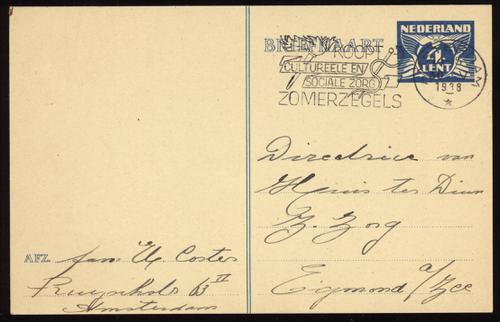 BRIEFKAART
NEDERLAND
4
CENT
KOOPT
CULTUREELE EN
SOCIALE ZORG
ZOMERZEGELS
AM
1938
Directrice van
Huis ter Duin
Z. Zorg
Egmond a/Zee
AFZ. fam. Coster
63 IV
Amsterdam